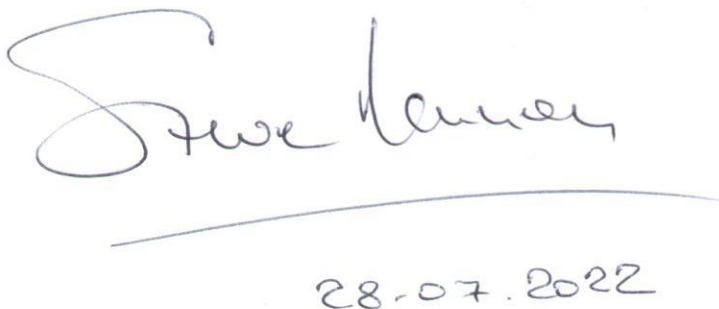 Steve
28-07.2022